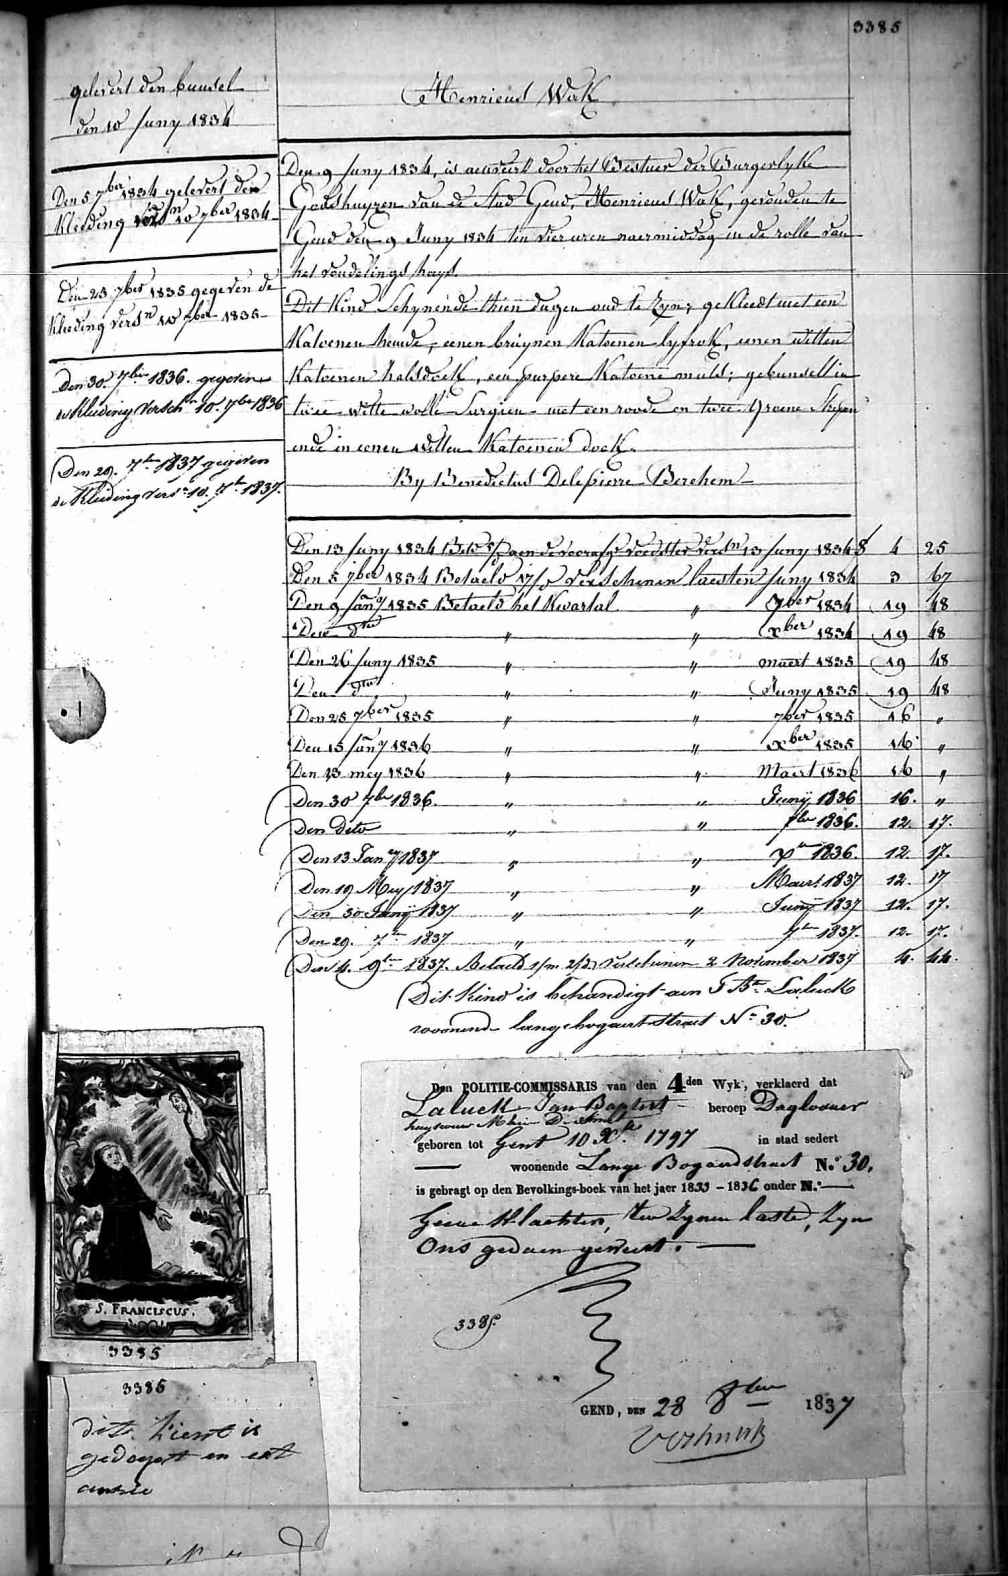 3385
gelevert den bundel
den 10 Juny 1834
Den 5 7ber 1834 gelevert den
Kleeding 10 7ber 1834
Den 23 7ber 1835 gegeven de
kleeding versn 10 7ber 1835
Den 30. 7ber 1836. gegeven
de Kleeding Versch 10. 7be 1836
Den 29. 7br 1837 gegeven
de Kleeding vers 10. 7br 1837.
Henricus Wak
Den 9 Juny 1834, is aenveird door het Bestuer der Burgerlyke
Godshuyzen van de Stad Gend, Henricus Wak, gevonden te
Gend den 9 Juny 1834 ten vier uren naermiddag in de rolle van
het vondelings huys
Dit Kind Schynende thien dagen oud te Zyn; gekleedt met een
Katoenen hemde, eenen bruynen Katoenen lyfrok, eenen witten
Katoenen halsdoek, een purpere Katoene muts; gebunselt in
twee witte wolle Surgien met een roode en twee groene Strepen
ende in eenen witten Katoenen doek.
By Benedictus Delepierre Berchem
Den 13 Juny 1834 aen de voorsz voedster versn 13 Juny 1834 8 4 25
Den 5 7ber 1834 Betaeld 17/ verschenen laesten Juny 1834 3 67
Den 9 Jany 1835 Betaeld het Kwartal " 7ber 1834 19 48
Den dto " " Xber 1834 19 48
Den 26 Juny 1835 " " maert 1835 19 48
Den dto " " Juny 1835 19 48
Den 25 7ber 1835 " " 7ber 1835 16 "
Den 15 Jany 1836 " " Xber 1835 16 "
Den 13 mey 1836 " " Maert 1836 16 "
Den 30 7br 1836. " " Junÿ 1836 16. "
Den dito " " 7br 1836. 12. 17.
Den 13 Jany 1837 " " Xbr 1836. 12. 17.
Den 19 Mey 1837 " " Maert 1837 12. 17
Den 30 Junÿ 1837 " " Junÿ 1837 12. 17.
Den 29. 7br 1837 " " 7br 1837. 12. 17.
Den 4. 9br 1837. Betaeld 1/m 2/d verschenen 2 November 1837 4. 44.
Dit Kind is behandigt aen J Bte Laluck
woonende lange bogaert straet No 30.
Den POLITIE-COMMISSARIS van den 4den Wyk, verklaerd dat
Laluck Jan Baptist beroep Daglooner
huysvrouw
geboren tot Gent 10 Xbr 1797 in stad sedert
— woonende Lange Bogaardstraet N.o 30.
is gebragt op den Bevolkings-boek van het jaer 1833 - 1836 onder N.o —
Geene Klachten, ten Zynen laste, Zyn
Ons gedaen geweest. —
3385.
GEND, DEN 28 8ber 1837
S. FRANCISCUS.
3385
3385
dit kient is
gedoopt en